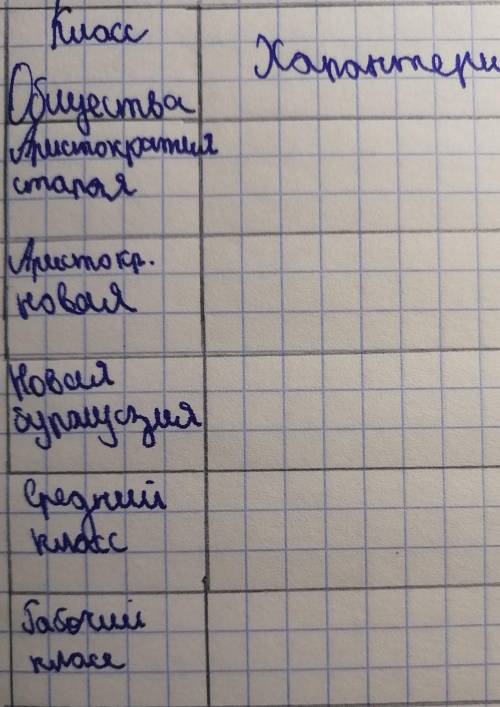 Класс
Общества
Характери
Аристократия
старая
Аристокр.
новая
Новая
буржуазия
Средний
класс
Рабочий
класс